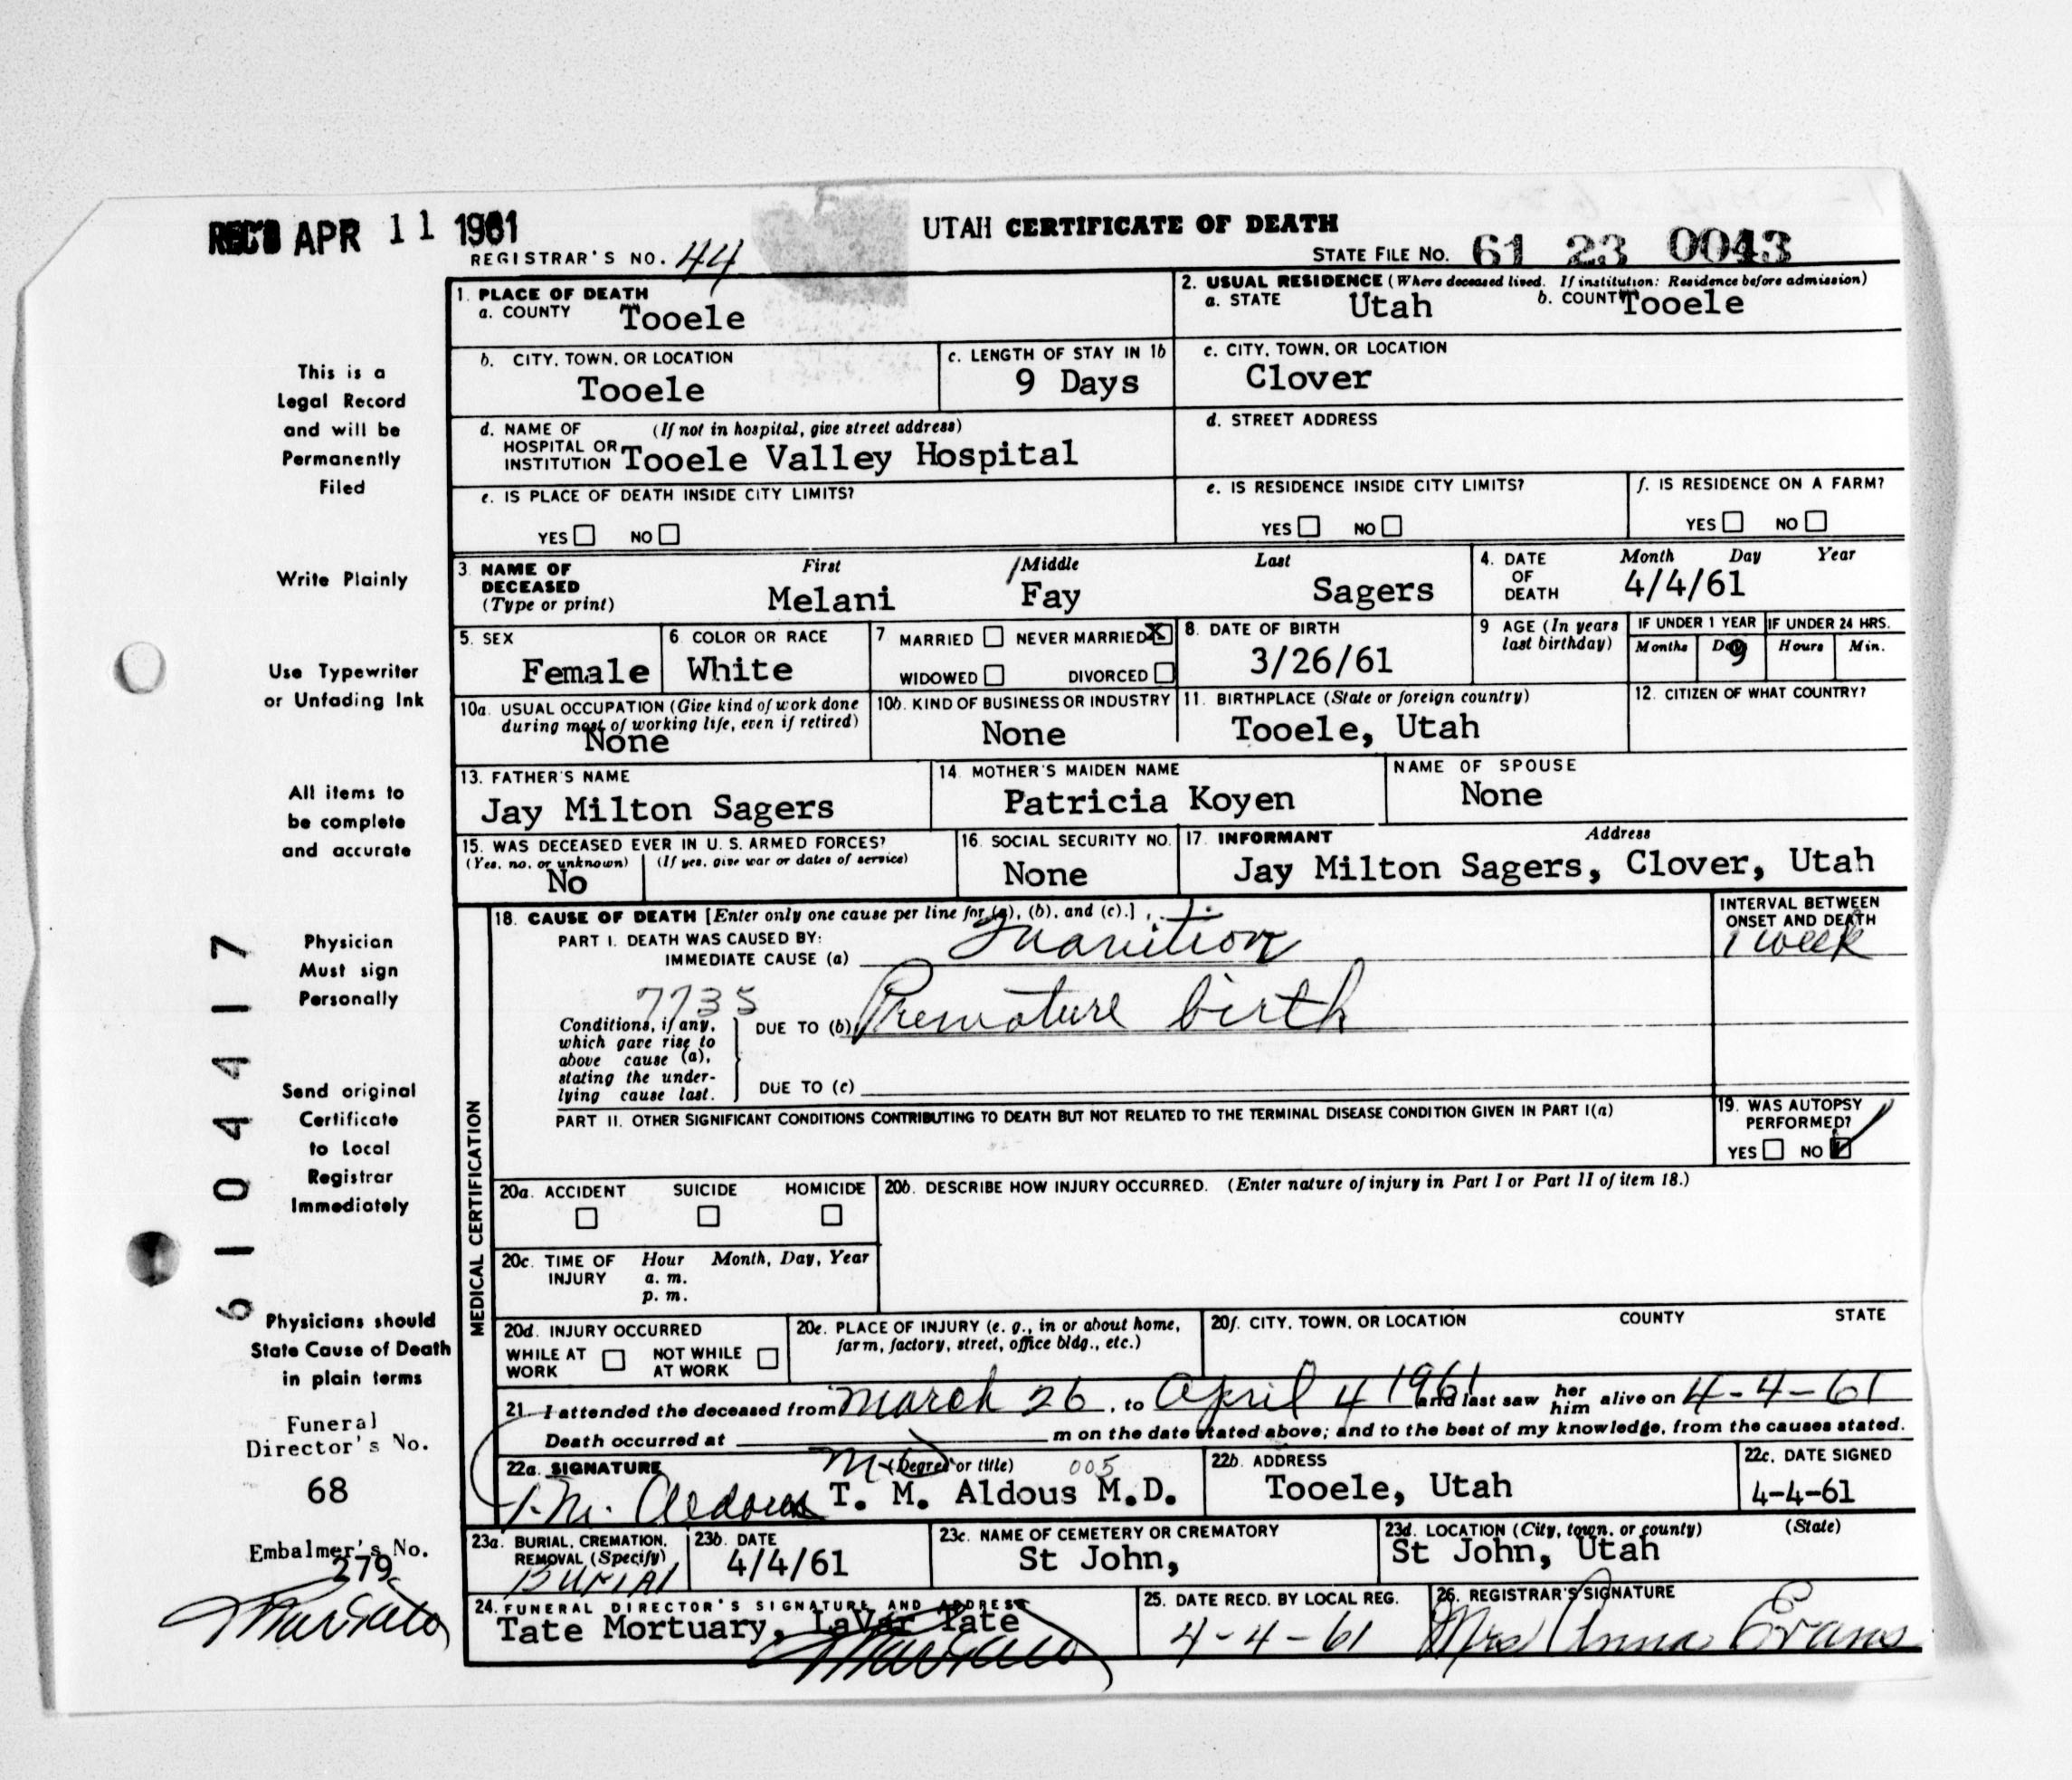 REC'D APR 11 1961
UTAH CERTIFICATE OF DEATH
REGISTRAR'S NO. 44
STATE FILE NO. 61 23 0043
1. PLACE OF DEATH
a. COUNTY Tooele
2. USUAL RESIDENCE (Where deceased lived. If institution: Residence before admission)
a. STATE Utah b. COUNTY Tooele
b. CITY, TOWN, OR LOCATION
Tooele
c. LENGTH OF STAY IN 1b
9 Days
c. CITY, TOWN, OR LOCATION
Clover
d. NAME OF (If not in hospital, give street address)
HOSPITAL OR
INSTITUTION Tooele Valley Hospital
d. STREET ADDRESS
e. IS PLACE OF DEATH INSIDE CITY LIMITS?
YES NO
e. IS RESIDENCE INSIDE CITY LIMITS?
YES NO
f. IS RESIDENCE ON A FARM?
YES NO
3. NAME OF DECEASED (Type or print)
First Middle Last
Melani Fay Sagers
4. DATE OF DEATH
Month Day Year
4/4/61
5. SEX
Female
6. COLOR OR RACE
White
7 MARRIED NEVER MARRIED X
WIDOWED DIVORCED
8. DATE OF BIRTH
3/26/61
9 AGE (In years last birthday)
IF UNDER 1 YEAR IF UNDER 24 HRS.
Months Days Hours Min.
9
10a. USUAL OCCUPATION (Give kind of work done
during most of working life, even if retired)
None
10b. KIND OF BUSINESS OR INDUSTRY
None
11. BIRTHPLACE (State or foreign country)
Tooele, Utah
12. CITIZEN OF WHAT COUNTRY?
13. FATHER'S NAME
Jay Milton Sagers
14. MOTHER'S MAIDEN NAME
Patricia Koyen
NAME OF SPOUSE
None
15. WAS DECEASED EVER IN U. S. ARMED FORCES?
(Yes, no, or unknown) (If yes, give war or dates of service)
No
16. SOCIAL SECURITY NO.
None
17. INFORMANT Address
Jay Milton Sagers, Clover, Utah
MEDICAL CERTIFICATION
18. CAUSE OF DEATH [Enter only one cause per line for (a), (b), and (c).]
PART I. DEATH WAS CAUSED BY:
IMMEDIATE CAUSE (a) Inanition
INTERVAL BETWEEN
ONSET AND DEATH
1 week
7735
Conditions, if any,
which gave rise to
above cause (a),
stating the under-
lying cause last.
DUE TO (b) Premature birth
DUE TO (c)
PART II. OTHER SIGNIFICANT CONDITIONS CONTRIBUTING TO DEATH BUT NOT RELATED TO THE TERMINAL DISEASE CONDITION GIVEN IN PART I(a)
19. WAS AUTOPSY
PERFORMED?
YES NO
20a. ACCIDENT SUICIDE HOMICIDE
20b. DESCRIBE HOW INJURY OCCURRED. (Enter nature of injury in Part I or Part II of item 18.)
20c. TIME OF INJURY
Hour Month, Day, Year
a. m.
p. m.
20d. INJURY OCCURRED
WHILE AT WORK NOT WHILE AT WORK
20e. PLACE OF INJURY (e. g., in or about home,
farm, factory, street, office bldg., etc.)
20f. CITY, TOWN, OR LOCATION COUNTY STATE
21 I attended the deceased from March 26, to April 4 1961 and last saw her him alive on 4-4-61
Death occurred at m on the date stated above; and to the best of my knowledge, from the causes stated.
22a. SIGNATURE (Degree or title) 005
T. M. Aldous MD T. M. Aldous M.D.
22b. ADDRESS
Tooele, Utah
22c. DATE SIGNED
4-4-61
23a. BURIAL, CREMATION,
REMOVAL (Specify)
BURIAL
23b. DATE
4/4/61
23c. NAME OF CEMETERY OR CREMATORY
St John,
23d. LOCATION (City, town, or county) (State)
St John, Utah
24. FUNERAL DIRECTOR'S SIGNATURE AND ADDRESS
Tate Mortuary, LaVar Tate
25. DATE RECD. BY LOCAL REG.
4-4-61
26. REGISTRAR'S SIGNATURE
Mrs Anna Evans
This is a
Legal Record
and will be
Permanently
Filed
Write Plainly
Use Typewriter
or Unfading Ink
All items to
be complete
and accurate
Physician
Must sign
Personally
Send original
Certificate
to Local
Registrar
Immediately
Physicians should
State Cause of Death
in plain terms
Funeral
Director's No.
68
Embalmer's No.
279
6104417